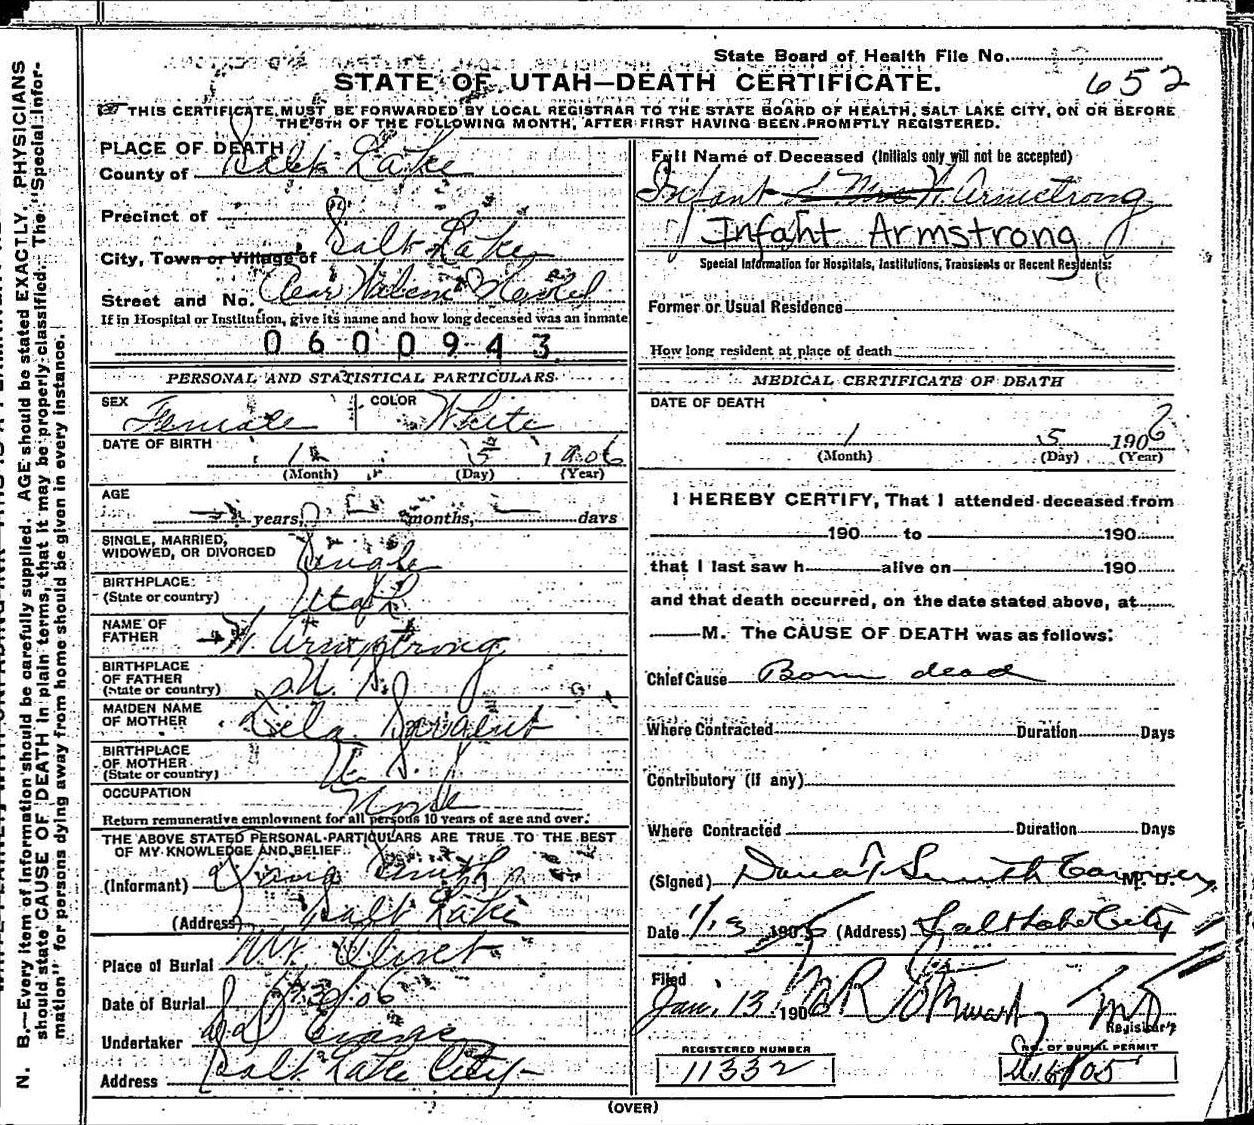 State Board of Health File No.
652
STATE OF UTAH—DEATH CERTIFICATE.
THIS CERTIFICATE MUST BE FORWARDED BY LOCAL REGISTRAR TO THE STATE BOARD OF HEALTH, SALT LAKE CITY, ON OR BEFORE
THE 5TH OF THE FOLLOWING MONTH, AFTER FIRST HAVING BEEN PROMPTLY REGISTERED.
PLACE OF DEATH
County of Salt Lake
Precinct of
City, Town or Village of Salt Lake
Street and No. Wilson
If in Hospital or Institution, give its name and how long deceased was an inmate
0600943
PERSONAL AND STATISTICAL PARTICULARS.
SEX Female COLOR White
DATE OF BIRTH 1 5 1906
(Month) (Day) (Year)
AGE
years, months, days
SINGLE, MARRIED,
WIDOWED, OR DIVORCED Single
BIRTHPLACE:
(State or country) Utah
NAME OF
FATHER W. Armstrong
BIRTHPLACE
OF FATHER
(State or country) U. S.
MAIDEN NAME
OF MOTHER
BIRTHPLACE
OF MOTHER
(State or country) U. S.
OCCUPATION None
Return remunerative employment for all persons 10 years of age and over.
THE ABOVE STATED PERSONAL PARTICULARS ARE TRUE TO THE BEST
OF MY KNOWLEDGE AND BELIEF.
(Informant) Smith
(Address) Salt Lake
Place of Burial Mt. Olivet
Date of Burial
Undertaker Evans
Address Salt Lake City
Full Name of Deceased (Initials only will not be accepted)
Infant W. Armstrong
Infant Armstrong
Special Information for Hospitals, Institutions, Transients or Recent Residents:
Former or Usual Residence
How long resident at place of death
MEDICAL CERTIFICATE OF DEATH
DATE OF DEATH
1 5 1906
(Month) (Day) (Year)
I HEREBY CERTIFY, That I attended deceased from
190 to 190
that I last saw h alive on 190
and that death occurred, on the date stated above, at
M. The CAUSE OF DEATH was as follows:
Chief Cause Born dead
Where Contracted Duration Days
Contributory (if any)
Where Contracted Duration Days
(Signed) Dana T Smith M. D.
Date 1/13 190 (Address) Salt Lake City
Filed
Jan. 13 1906
Registrar
REGISTERED NUMBER
11332
NO. OF BURIAL PERMIT
(OVER)
N. B.—Every item of information should be carefully supplied. AGE should be stated EXACTLY. PHYSICIANS
should state CAUSE OF DEATH in plain terms, that it may be properly classified. The "Special Infor-
mation" for persons dying away from home should be given in every instance.